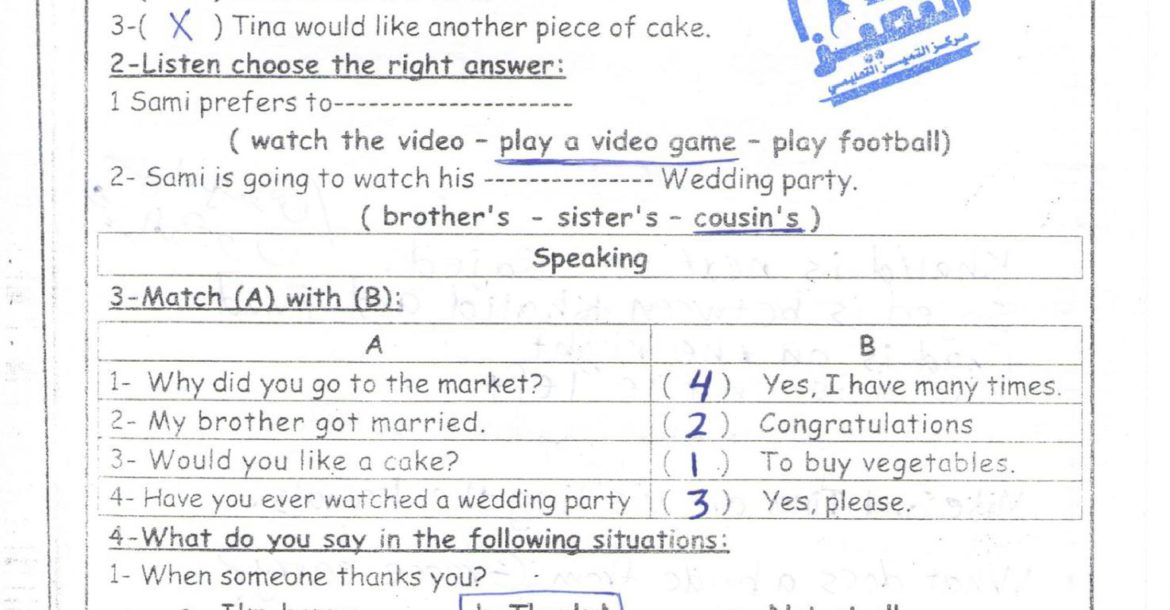 3-( X ) Tina would like another piece of cake.
2-Listen choose the right answer:
1 Sami prefers to---------------------
( watch the video - play a video game - play football)
2- Sami is going to watch his --------------- Wedding party.
( brother's - sister's - cousin's )
Speaking
3-Match (A) with (B):
A B
1- Why did you go to the market? ( 4 ) Yes, I have many times.
2- My brother got married. ( 2 ) Congratulations
3- Would you like a cake? ( 1 ) To buy vegetables.
4- Have you ever watched a wedding party ( 3 ) Yes, please.
4-What do you say in the following situations:
1- When someone thanks you?
مركز التميز التعليمي